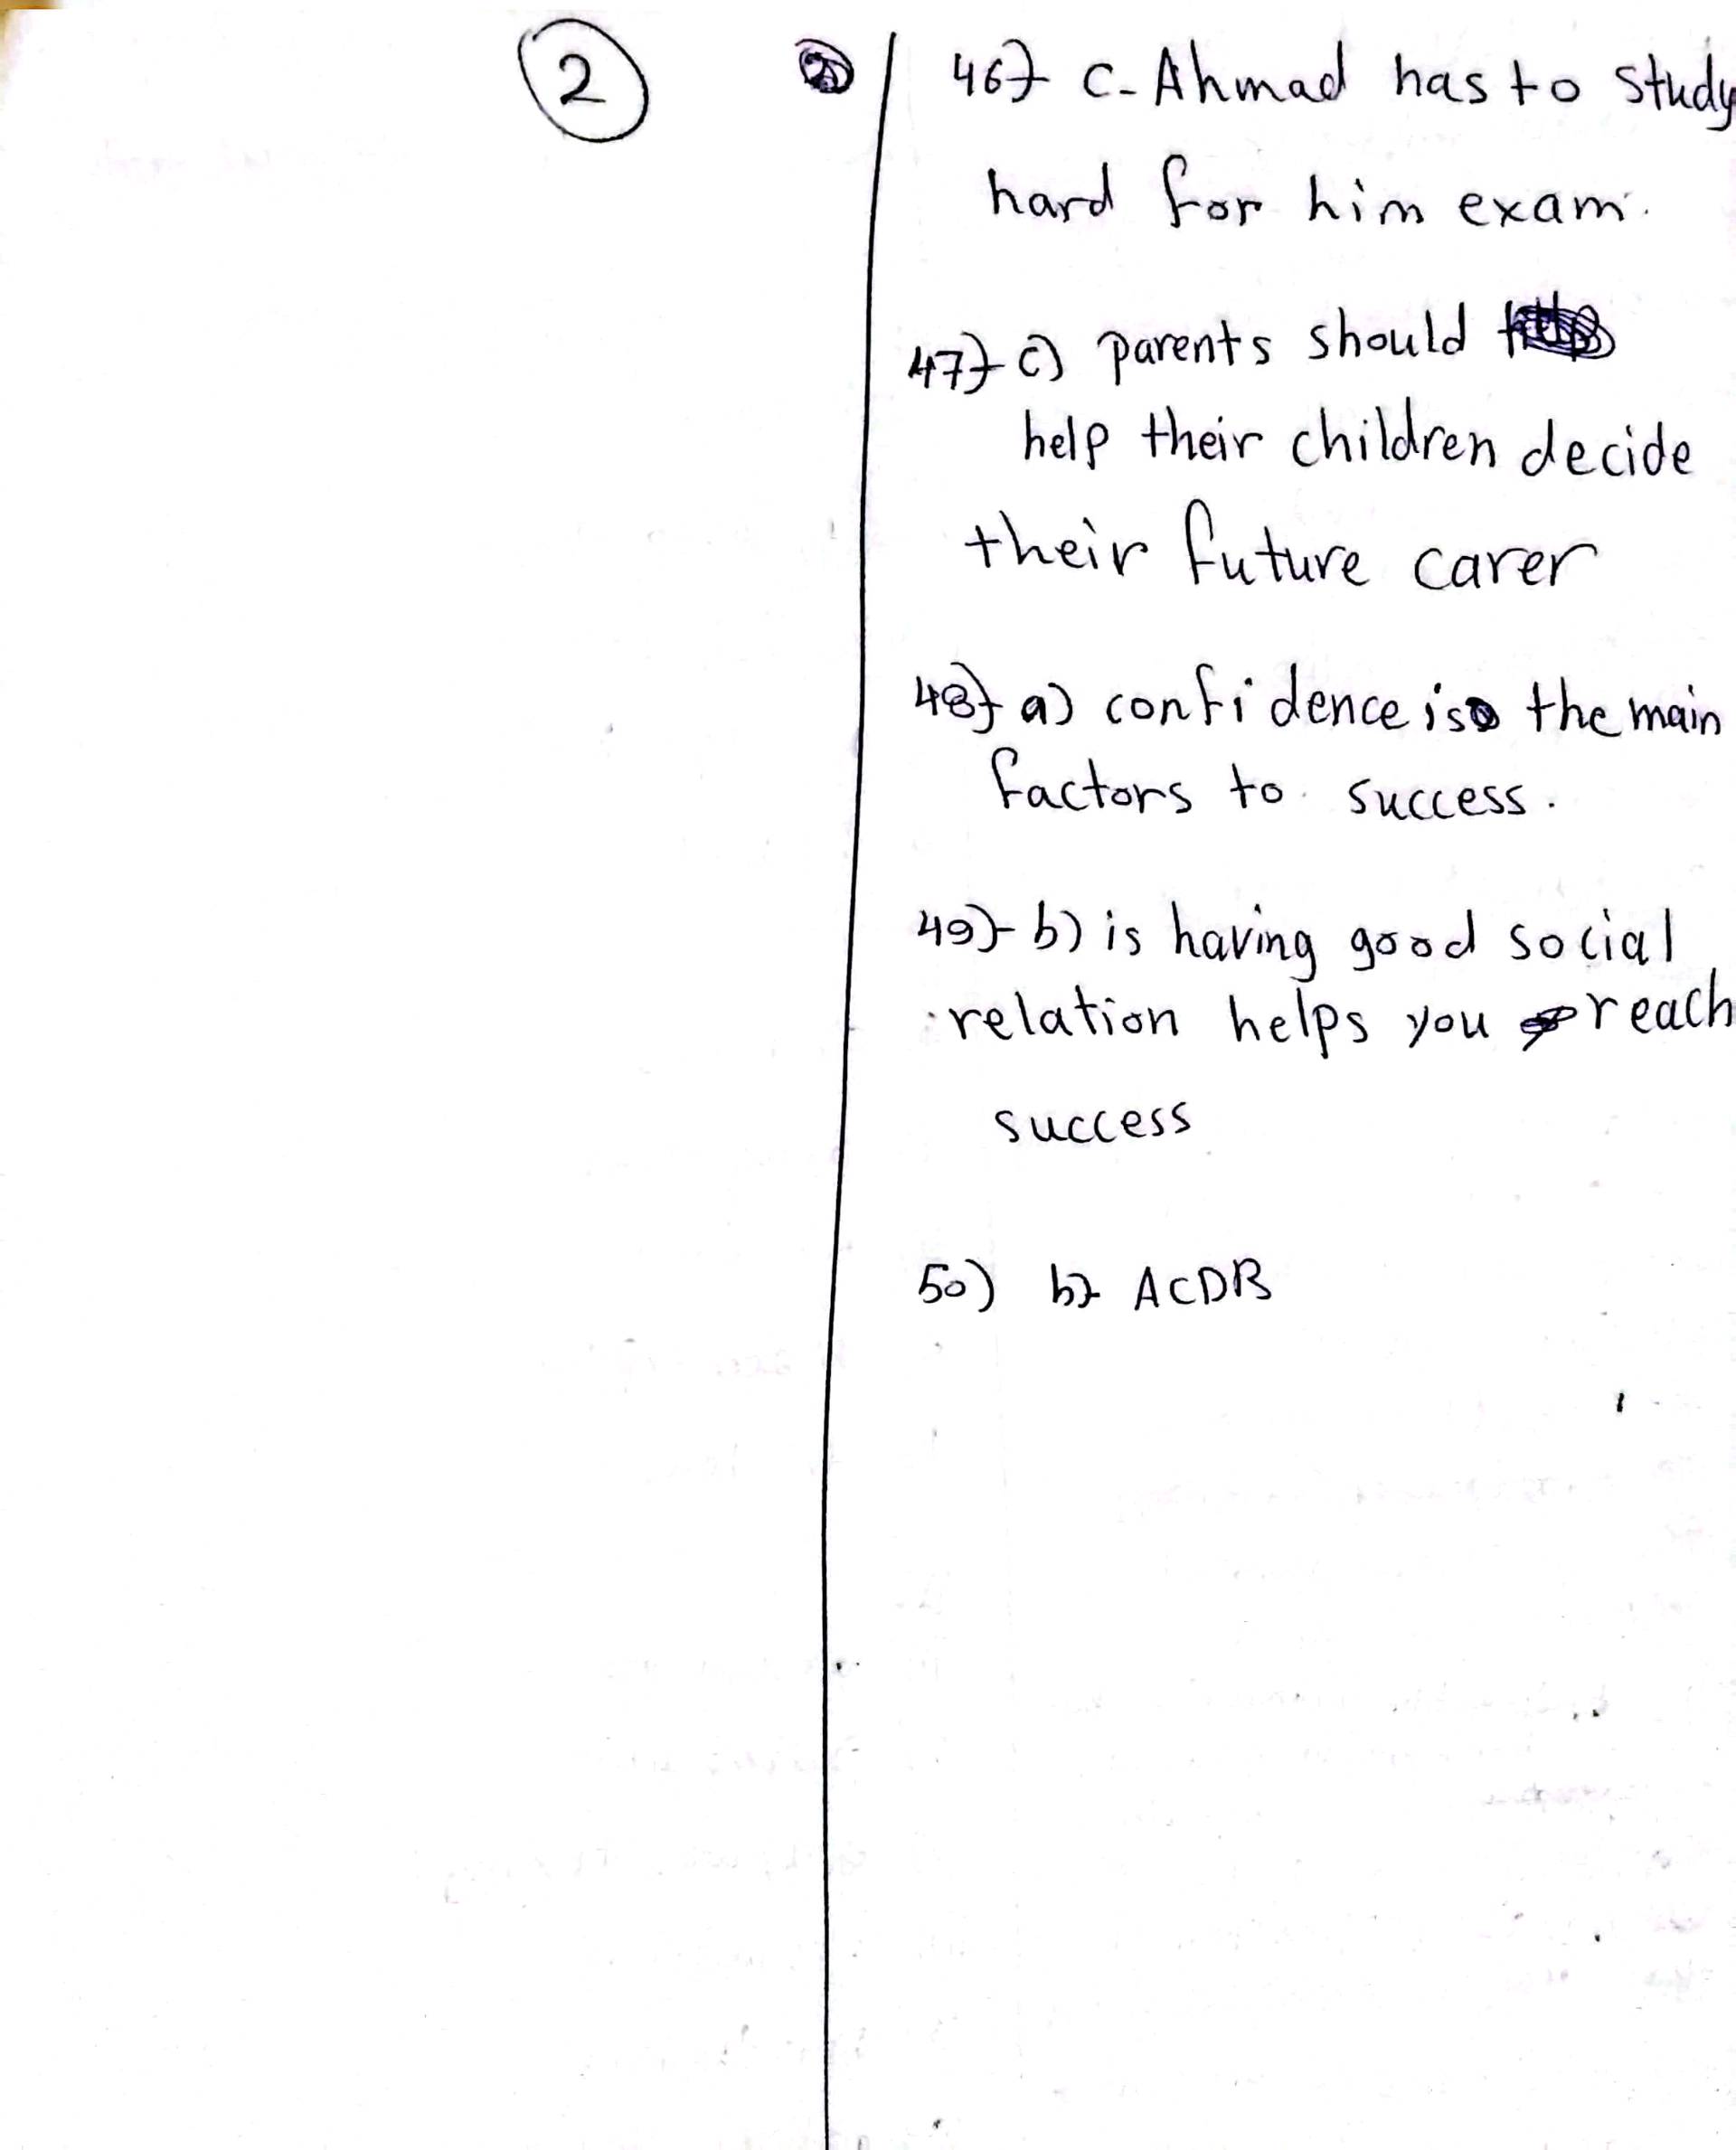 2
46) C- Ahmad has to study
hard for him exam.
47) c) parents should
help their children decide
their future carer
48) a) confidence is the main
factors to success.
49) b) is having good social
relation helps you reach
success
50) b) ACDB